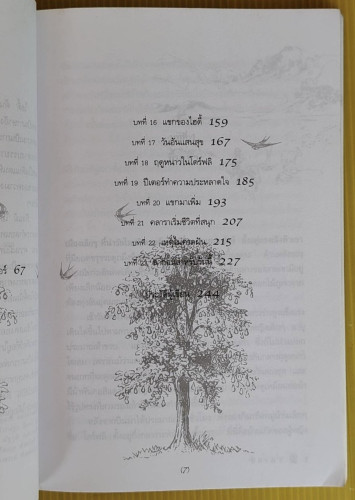 บทที่ 16 แขกของไฮดี้ 159
บทที่ 17 วันอันแสนสุข 167
บทที่ 18 ฤดูหนาวในโดร์ฟลิ 175
บทที่ 19 ปีเตอร์ทำความประหลาดใจ 185
บทที่ 20 แขกมาเพิ่ม 193
บทที่ 21 คลาราเริ่มชีวิตที่สนุก 207
บทที่ 22 เหตุไม่คาดฝัน 215
227
ประวัติผู้เขียน 244
อร์ 67
(7)